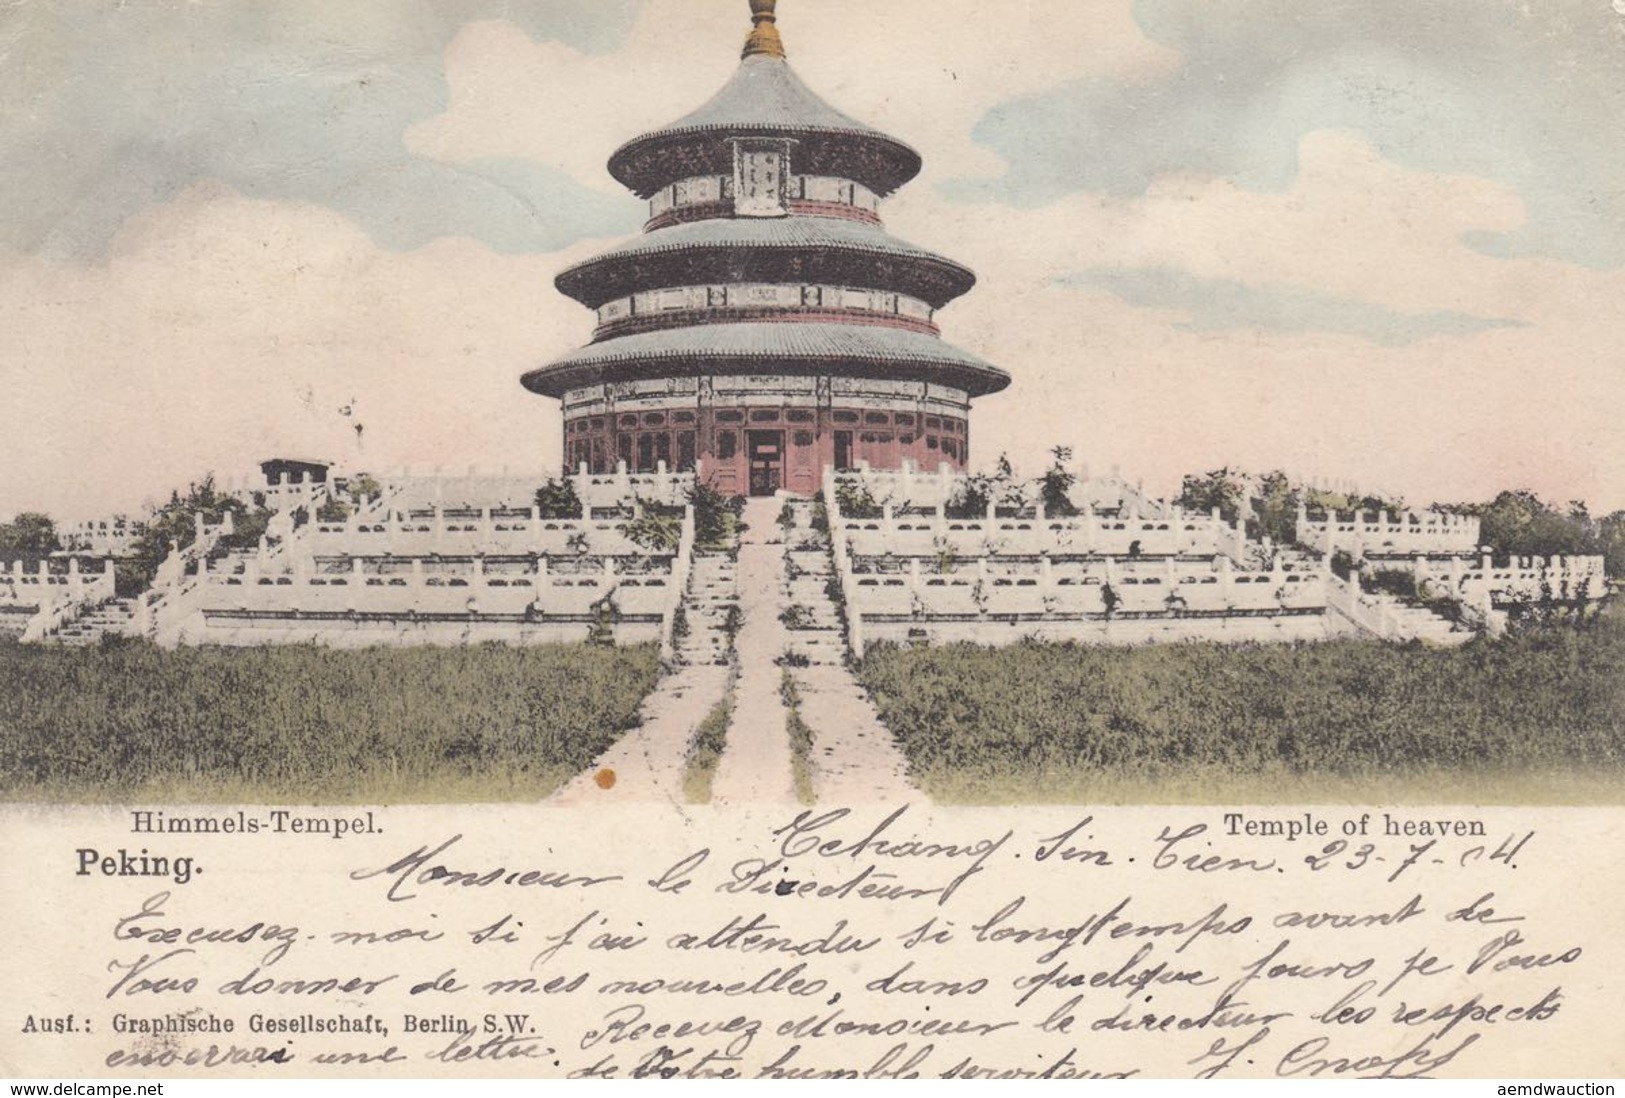 Himmels-Tempel.
Temple of heaven
Peking.
Tchang. Sin. Tien. 23-7-04.
Monsieur le Directeur
Excusez-moi si j'ai attendu si longtemps avant de
Vous donner de mes nouvelles, dans quelque jours je Vous
enverrai une lettre.
Recevez Monsieur le directeur les respects
de Votre humble serviteur
Ausf.: Graphische Gesellschaft, Berlin S.W.
delcampe.net
aemdwauction